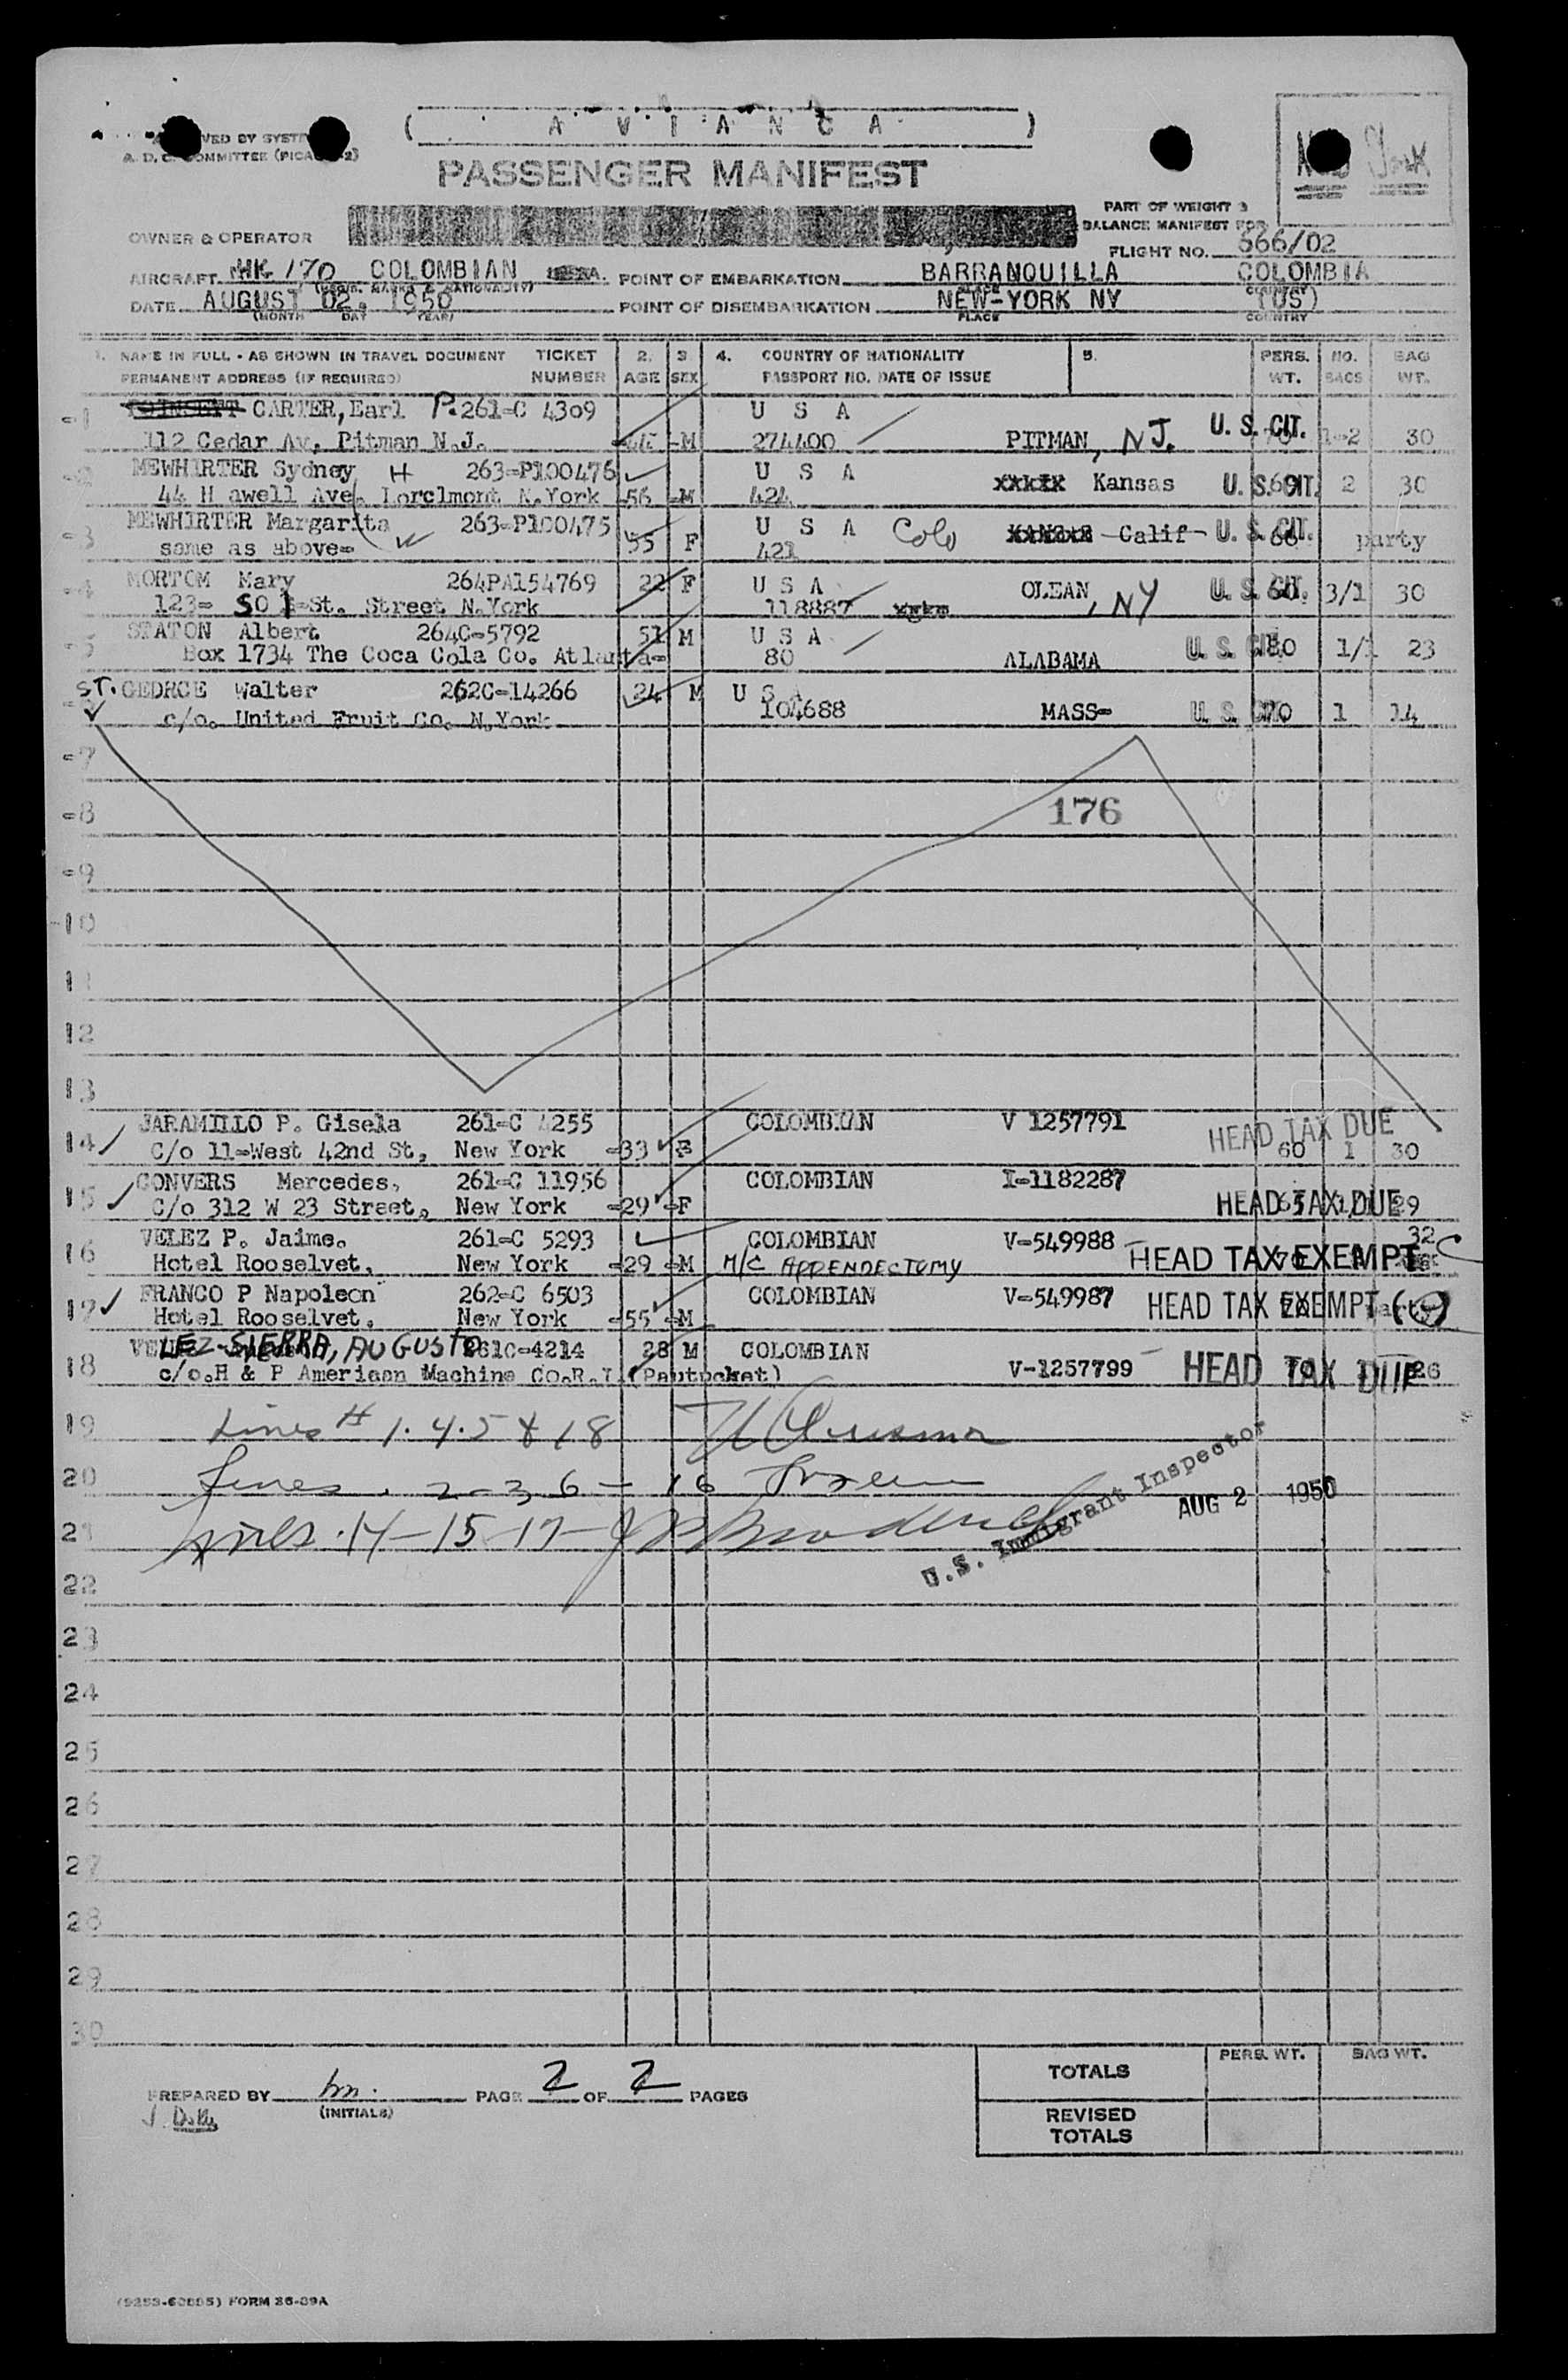 ( A V I A N C A )
A. D. C. COMMITTEE (PICAO
PASSENGER MANIFEST
York
PART OF WEIGHT &
BALANCE MANIFEST FOR
OWNER & OPERATOR
FLIGHT NO. 666/02
AIRCRAFT HK 170 COLOMBIAN POINT OF EMBARKATION BARRANQUILLA COLOMBIA
(REGIS. MARKS & NATIONALITY) PLACE COUNTRY
DATE AUGUST 02. 1950 POINT OF DISEMBARKATION NEW-YORK NY (US)
(MONTH DAY YEAR) PLACE COUNTRY
1. NAME IN FULL - AS SHOWN IN TRAVEL DOCUMENT TICKET 2. 3 4. COUNTRY OF NATIONALITY 5. PERS. NO. BAG
PERMANENT ADDRESS (IF REQUIRED) NUMBER AGE SEX PASSPORT NO. DATE OF ISSUE WT. BAGS WT.
-1 CARTER, Earl P. 261-C 4309 U S A U. S. CIT.
112 Cedar Av, Pitman N.J. -M 274400 PITMAN, NJ. 1-2 30
-2 MEWHIRTER Sydney H 263-P100476 U S A
44 H awell Ave. Lorclmont N.York -56 -M 424 Kansas U. S. CIT. 2 30
-3 MEWHIRTER Margarita 263-P100475 U S A Colo Calif- U. S. CIT.
same as above- 55 F 421 party
-4 MORTOM Mary 264PA154769 22 F U S A OLEAN, NY U. S. CIT. 3/1 30
123- SO 1-St. Street N.York 118887
-5 STATON Albert 264C-5792 51 M U S A U. S. CIT. 80 1/1 23
Box 1734 The Coca Cola Co. Atlanta- 80 ALABAMA
ST. GEORGE Walter 262C-14266 24 M U S A
c/o. United Fruit Co. N.York 104688 MASS- U. S. CIT. 70 1 14
-7
-8 176
-9
-10
11
12
13
14 JARAMILLO P. Gisela 261-C 4255 COLOMBIAN V 1257791 HEAD TAX DUE
C/o 11-West 42nd St, New York -33 F 60 1 30
15 CONVERS Mercedes, 261-C 11956 COLOMBIAN I-1182287
C/o 312 W 23 Street, New York -29 -F HEAD TAX DUE 29
16 VELEZ P. Jaime. 261-C 5293 COLOMBIAN V-549988 32
Hotel Rooselvet, New York -29 -M H/C APPENDECTOMY HEAD TAX EXEMPT C
17 FRANCO P Napoleon 262-C 6503 COLOMBIAN V-549987 HEAD TAX EXEMPT
Hotel Rooselvet, New York -55 -M
18 VELEZ-SIERRA, AUGUSTO 261C-4214 28 M COLOMBIAN
c/o.H & P Ameriaan Machine CO.R.I.(Pautucket) V-1257799 HEAD TAX DUE 26
19 Lines # 1. 4. 5 & 18
20 Lines . 2-3 6 - 16
21 Lines . 14-15-17-
U.S. Immigrant Inspector
AUG 2 1950
22
23
24
25
26
27
28
29
30
TOTALS PERS. WT. BAG WT.
PREPARED BY PAGE 2 OF 2 PAGES
(INITIALS)
REVISED
TOTALS
FORM 26-39A